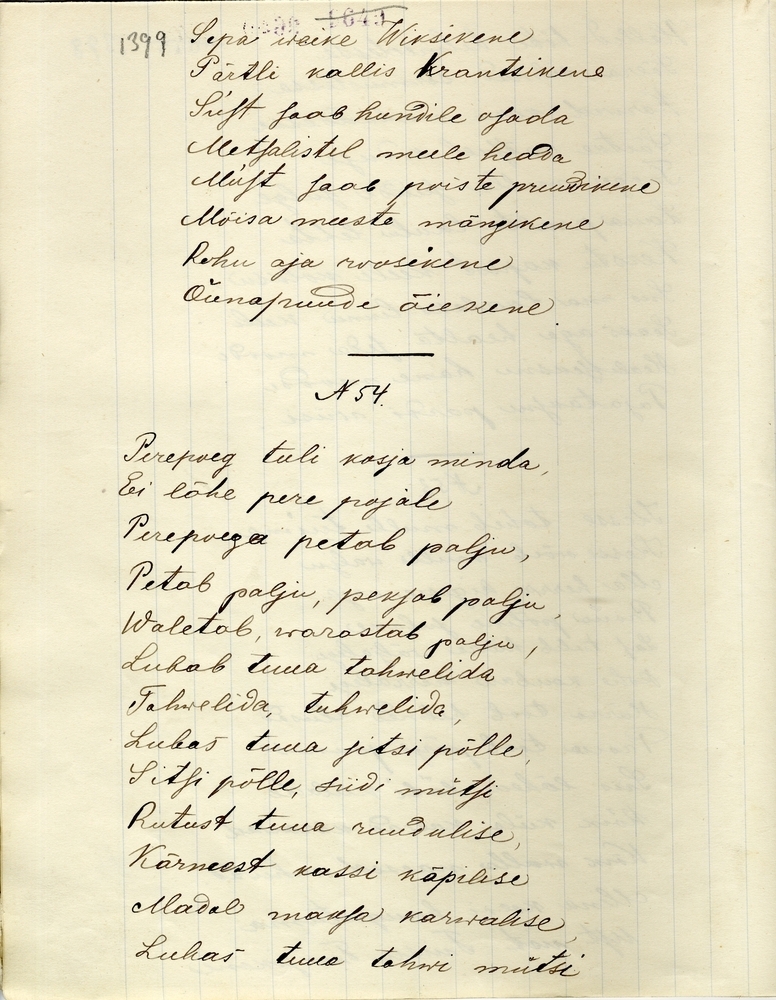 1399
Sepa weike Wiksikene
Pärtli kallis Krantsikene
Sust saab hundile osada
Metsalistel meele heada
Must saab poiste pruudikene
Mõisa meeste mängikene
Rohu aja roosikene
Õunapuude õiekene
N 54.
Perepoeg tuli kosja minda,
Ei lähe pere pojale
Perepoega petab palju,
Petab palju, peksab palju,
Waletab, warastab palju,
Lubab tuua tohwelida
Tohwelida, tuhwelida,
Lubas tuua sitsi põlle,
Sitsi põlle, siidi mütsi
Rutust tuua ruudulise,
Kärmest kassi käpilise
Madal maksa karwalise,
Lubas tuua tohwi mütsi